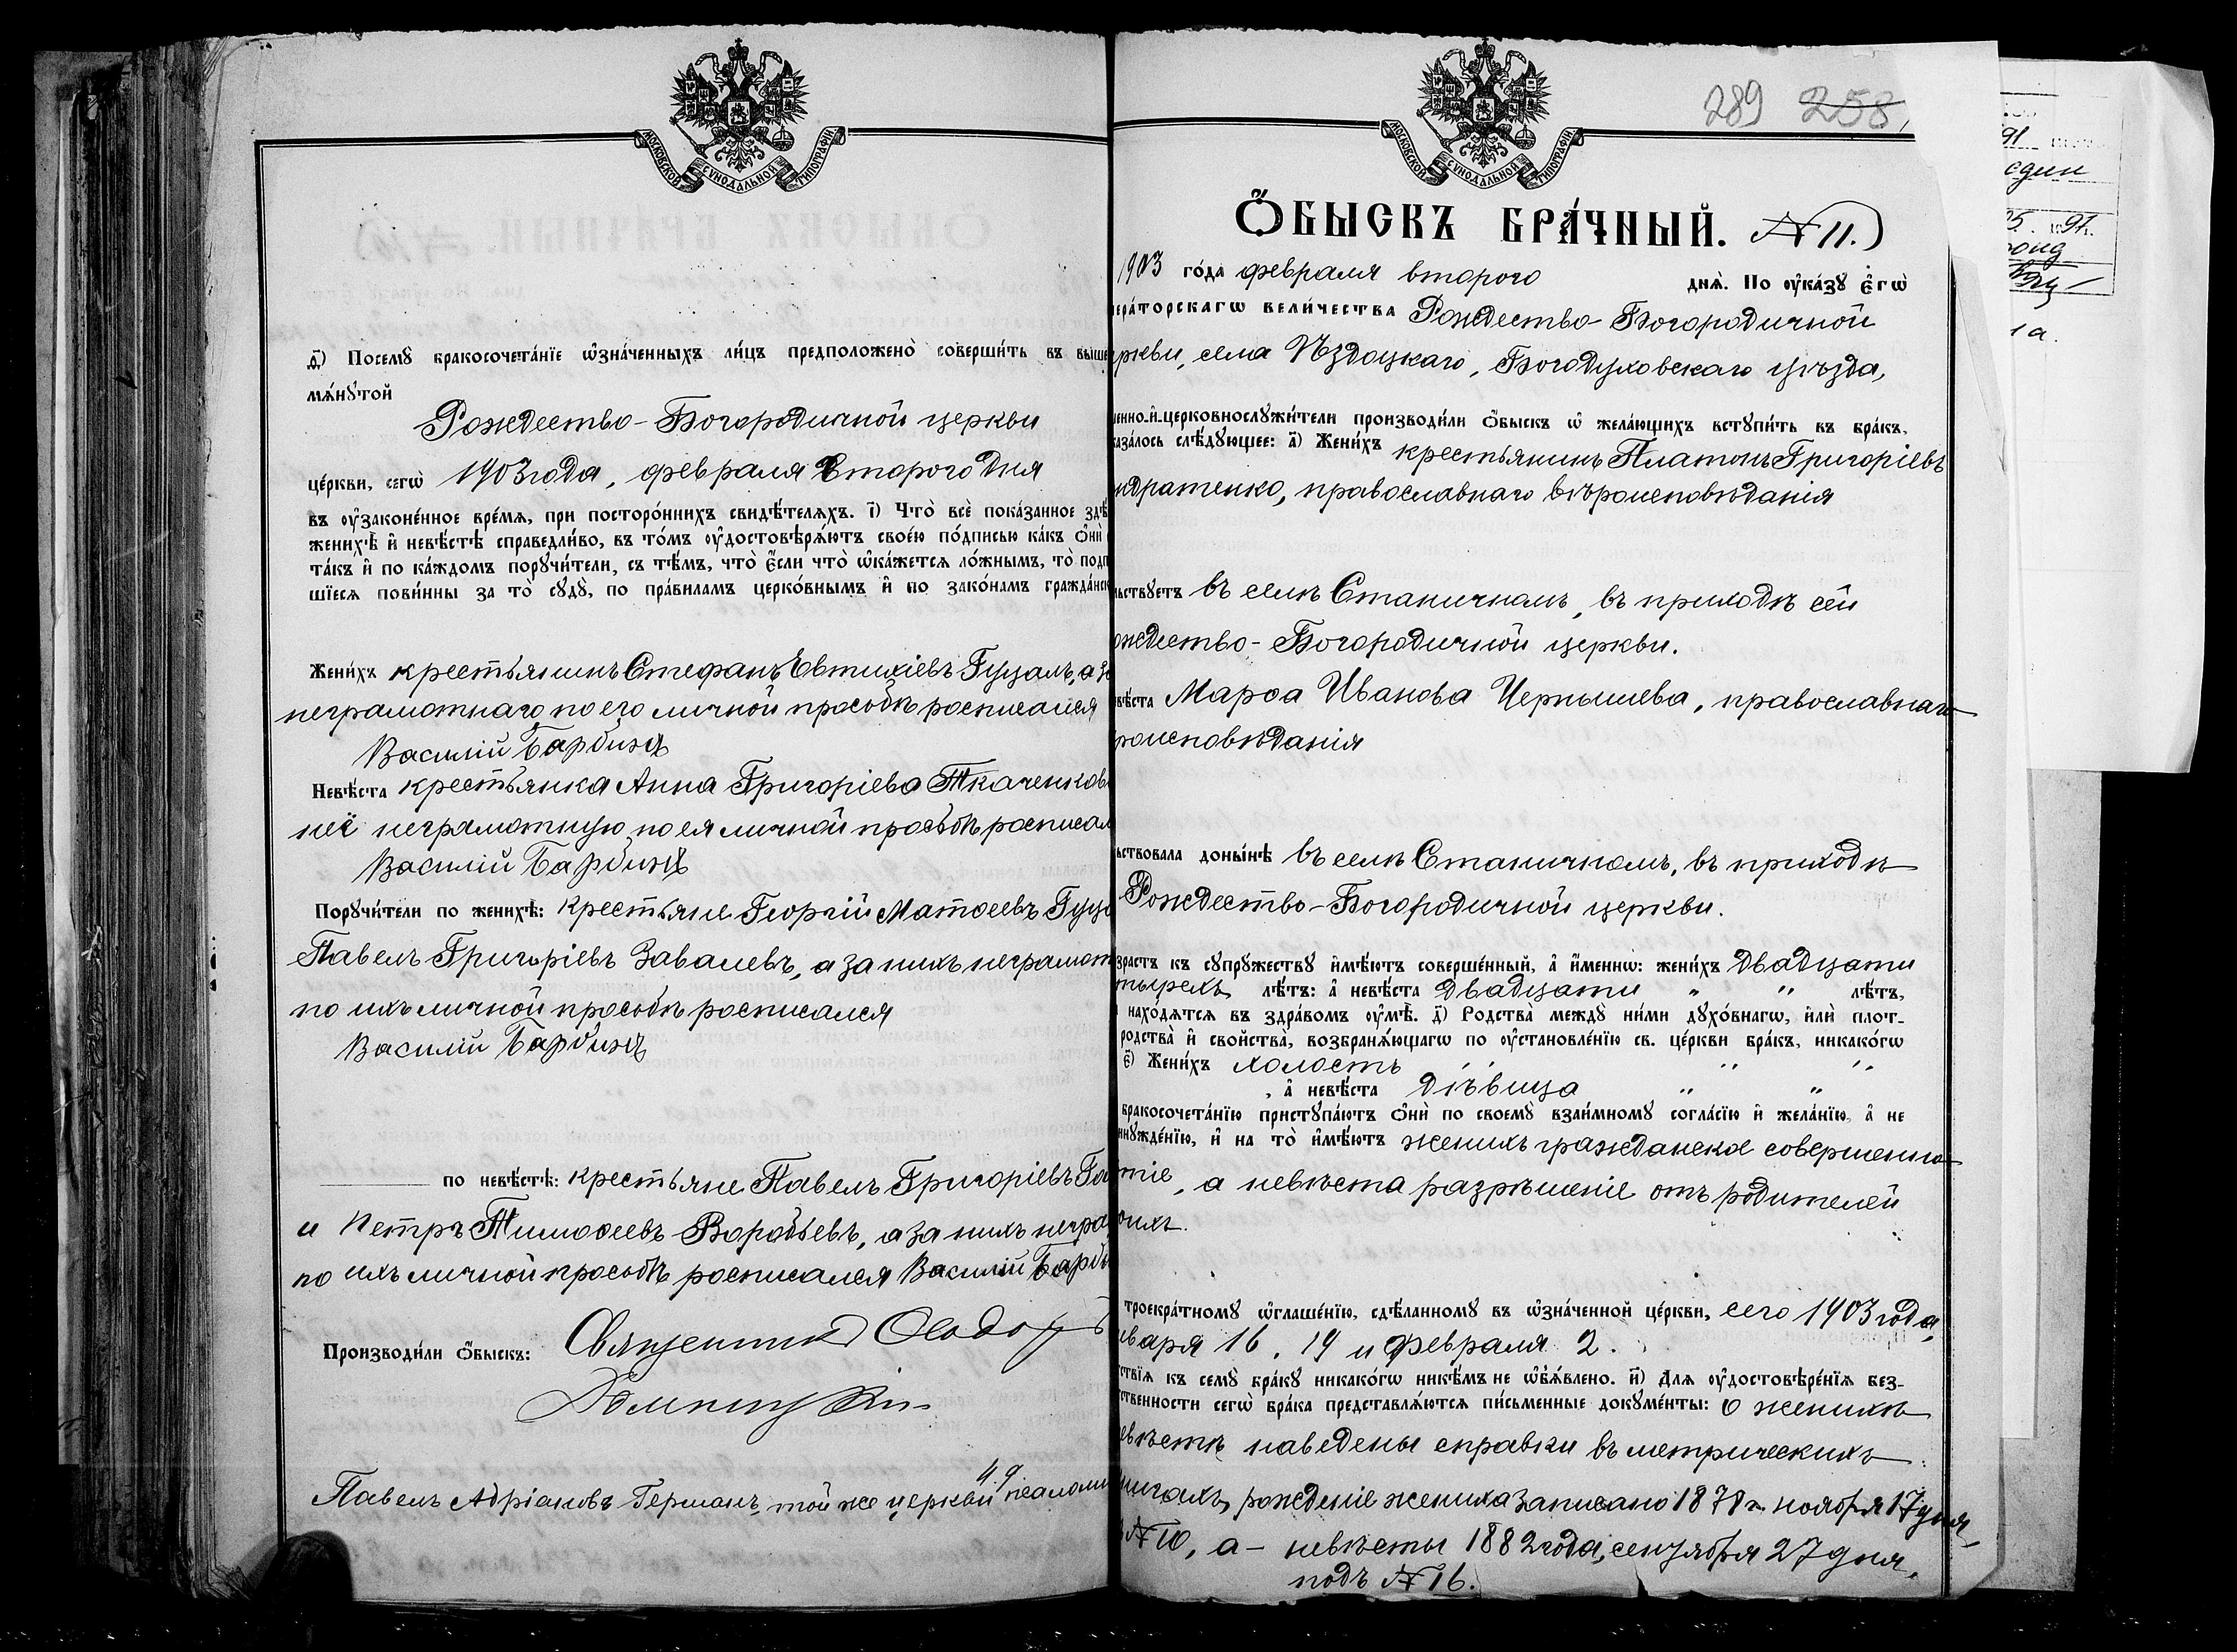 МОСКОВСКОЙ СѴНОДАЛЬНОЙ ТИПОГРАФІИ
д҃) Посемꙋ бракосочета́нїе ѡ҆зна́ченныхъ ли́цъ предположено̀ соверши́ть въ выше
мѧ́нꙋтой
Рождество-Богородичной церкви
це́ркви, сегѡ̀ 1903 года, февраля второго дня
въ ᲂу҆законе́нное вре́мѧ, при посторо́ннихъ свидѣ́телѧхъ. і҃) Что̀ всѐ пока́занное здѣ
женихѣ̀ и҆ невѣ́стѣ справедли́во, въ то́мъ ᲂу҆достовѣрѧ́ютъ свое́ю по́дписью ка́къ ѻ҆нѝ
та́къ и҆ по ка́ждомъ порꙋчи́тели, съ тѣ́мъ, что̀ є҆́сли что̀ ѡ҆ка́жетсѧ ло́жнымъ, то̀ подп
шїесѧ пови́нны за то̀ сꙋдꙋ̀, по пра́виламъ церко́внымъ и҆ по зако́намъ гражда́нск
Жени́хъ крестьянинъ Стефанъ Евтихіевъ Гуцалъ, а за
неграмотнаго по его личной просьбѣ росписался
Василій
Невѣ́ста крестьянка Анна Григоріева Ткаченков
неё неграмотную по ея личной просьбѣ росписал
Василій
Порꙋчи́тели по женихѣ̀: крестьяне Георгій Матѳеевъ Гуца
Павелъ Григоріевъ Завалевъ, а за нихъ неграмот
по ихъ личной просьбѣ росписался
Василій
по невѣ́стѣ: крестьяне Павелъ Григоріевъ
и Петръ Тимоѳеевъ Воробьевъ, а за нихъ негра
по ихъ личной просьбѣ росписался Василій
Производи́ли ѻ҆́быскъ: Священникъ Ѳеодоръ
Павелъ Адріановъ Германъ, той же церкви псалом
МОСКОВСКОЙ СѴНОДАЛЬНОЙ ТИПОГРАФІИ
289 258
Ѻ҆́БЫСКЪ БРА́ЧНЫЙ. № 11.)
1903 го́да февраля второго днѧ̀. По ᲂу҆ка́зꙋ є҆гѡ̀
ера́торскагѡ вели́чества Рождество-Богородичной
ркви, села Пѣздоцкаго, Богодуховскаго уѣзда,
енно-и҆-церковнослꙋжи́тели производи́ли ѻ҆́быскъ ѡ҆ жела́ющихъ встꙋпи́ть въ бра́къ,
аза́лось слѣ́дꙋющее: а҃) Жени́хъ крестьянинъ Платонъ Григоріевъ
ндратенко, православнаго вѣроисповѣданія
ьствꙋетъ въ селѣ Станичномъ, въ приходѣ сей
ождество-Богородичной церкви.
вѣ́ста Марѳа Иванова Чернышева, православнаго
роисповѣданія
ьствовала донынѣ въ селѣ Станичномъ, въ приходѣ
Рождество-Богородичной церкви.
зрастъ къ сꙋпрꙋжествꙋ и҆мѣ́ютъ соверше́нный, а҆ и҆́меннѡ: жени́хъ двадцати
тырехъ лѣ́тъ: а҆ невѣ́ста двадцати " " лѣ́тъ,
нахо́дѧтсѧ въ здра́вомъ ᲂу҆мѣ̀. д҃) Родства̀ междꙋ̀ ни́ми дꙋхо́внагѡ, и҆лѝ плот-
родства̀ и҆ сво́йства̀, возбранѧ́ющагѡ по ᲂу҆становле́нїю св. це́ркви бра́къ, никако́гѡ
є҃) Жени́хъ холостъ " "
, а҆ невѣ́ста дѣвица " "
бракосочета́нїю пристꙋпа́ютъ ѻ҆нѝ по своемꙋ̀ взаи́мномꙋ согла́сїю и҆ жела́нїю, а҆ не
инꙋжде́нїю, и҆ на то̀ и҆мѣ́ютъ женихъ гражданское совершенно-
тіе, а невѣста разрѣшеніе отъ родителей
оихъ.
троекра́тномꙋ ѡ҆глаше́нїю, сдѣ́ланномꙋ въ ѡ҆зна́ченной це́ркви, сего 1903 года,
нваря 16, 19 и февраля 2.
ствїѧ къ семꙋ̀ бра́кꙋ никако́гѡ никѣ́мъ не ѡ҆б̾ѧ́влено. и҃) Длѧ ᲂу҆достовѣре́нїѧ без-
ственности сегѡ̀ бра́ка представлѧ́ютсѧ пи́сьменные докꙋме́нты: о женихѣ
евѣстѣ наведены справки въ метрическихъ
нигахъ, рожденіе жениха записано 1878 г. ноября 17 дня
№ 10, а - невѣсты 1882 года, сентября 27 дня,
подъ № 16.